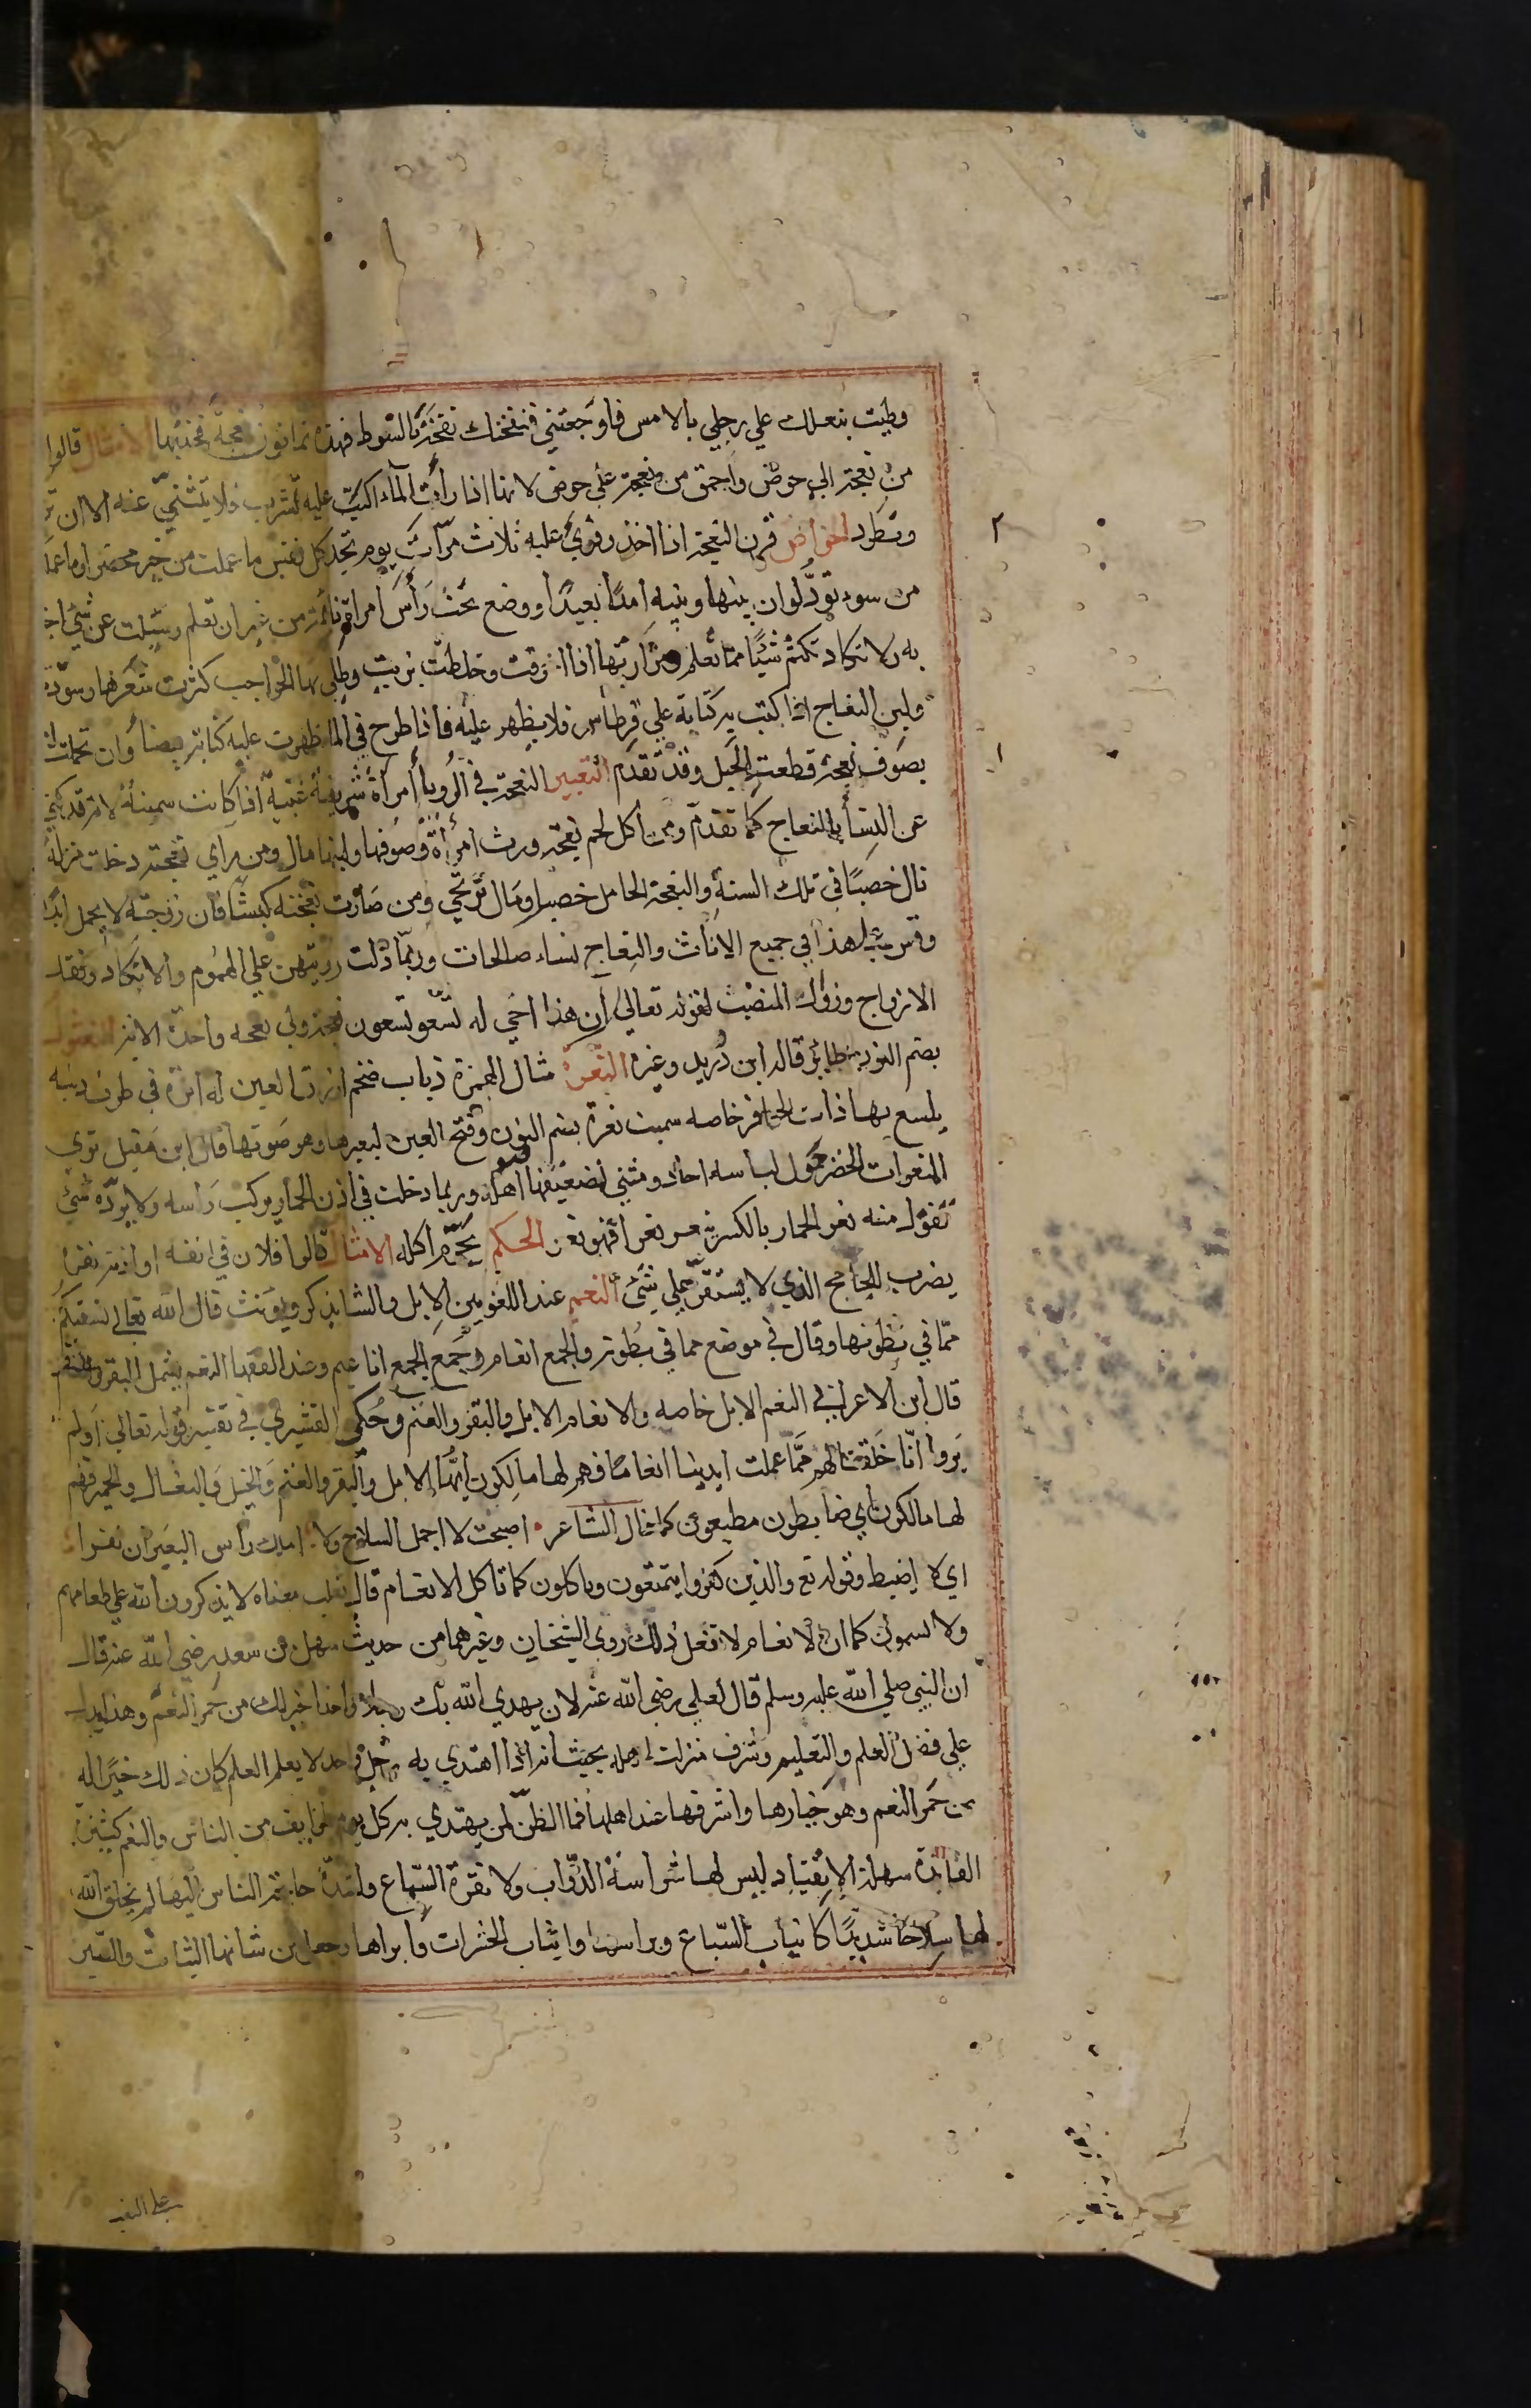 وطيت بنعلك علي رجلي بالامس فاوجعتني فنفحتك نفحة بالسوط فهذه ثمانون نعجة فخذها الامثال قالوا
من نعجة الي حوض واحمق من نعجة علي حوض لانها اذا رأت الماء اكبت عليه تشرب فلا تنثني عنه الا ان تز
وتطرد الخواص قرن النعجة اذا اخذ وقرئ عليه ثلاث مرات يوم تجد كل نفس ما عملت من خير محضرا وما عملت
من سوء تود لو ان بينها وبينه امدا بعيدا ووضع تحت رأس امراة نائمة من غير ان تعلم وسئلت عن شئ اخ
به ولا تكاد تكتم شيئا مما تعلم ومرارتها اذا احرقت وخلطت بزيت وطلي بها الحواجب كثرت شعرها وسوده
ولبن النعاج اذا كتب به كتابة علي قرطاس فلا يظهر عليه فاذا طرح في الما ظهرت عليه كتابة بيضا وان تحملت
بصوف نعجة قطعت الحبل وقد تقدم التعبير النعجة في الرويا امراة شريفة غنية اذا كانت سمينة لانه قد كني
عن النسأ بالنعاج كما تقدم ومن اكل لحم نعجة ورث امرأة وصوفها ولبنها مال ومن رأي نعجة دخلت منزله
نال خصبا في تلك السنة والنعجة الحامل خصب ومال يرتجي ومن صارت نعجته كبشا فان زوجته لا تحمل ابدا
وقس علي هذا في جميع الاناث والنعاج نساء صالحات وربما دلت رؤيتهن علي الهموم والانكاد وفقد
الازواج وزوال المنصب لقوله تعالي ان هذا اخي له تسع وتسعون نعجة ولي نعجه واحدة الاية النعبول
بضم النون طائر قاله ابن دريد وغيره النعرة مثال الهمزة ذباب ضخم ازرق العين له ابرة في طرف ذنبه
يلسع بها ذات الحافر خاصه سميت نعرة بضم النون وفتح العين لنعيرها وهو صوتها قال ابن مقبل تري
النعرات الخضر حول لبانه احاد ومثني اضعفتها صواهله وربما دخلت في اذن الحمار فيركب رأسه ولا يرده شئ
تقول منه نعر الحمار بالكسر ينعر نعرا فهو نعر الحكم يحرم اكله الامثال قالوا فلان في انفه او اذنه نعرة
يضرب للجامح الذي لا يستقر علي شئ النعم عند اللغويين الابل والشا يذكر ويونث قال الله تعالي نسقيكم
مما في بطونها وقال في موضع مما في بطونه والجمع انعام وجمع الجمع اناعيم وعند الفقها النعم يشمل البقر والغنم
قال ابن الاعرابي النعم الابل خاصه والانعام الابل والبقر والغنم وحكي القشيري في تفسير قوله تعالي اولم
يروا انا خلقنا لهم مما عملت ايدينا انعاما فهم لها مالكون انها الابل والبقر والغنم والخيل والبغال والحمير فهم
لها مالكون اي ضابطون مطيعون كما قال الشاعر • اصبحت لا احمل السلاح ولا املك رأس البعير ان نفرا
اي لا اضبط وقوله تع والذين كفروا يتمتعون وياكلون كما تاكل الانعام قال ثعلب معناه لا يذكرون الله علي طعامهم
ولا يسمون كما ان الانعام لا تفعل ذلك روي الشيخان وغيرهما من حديث سهل بن سعد رضي الله عنه قال
ان النبي صلي الله عليه وسلم قال لعلي رضي الله عنه لان يهدي الله بك رجلا واحدا خير لك من حمر النعم وهذا يدل
علي فضل العلم والتعليم وشرف منزلة اهله بحيث انه اذا اهتدي به رجل واحد لا يعلم العلم كان ذلك خيرا له
من حمر النعم وهو خيارها واشرفها عند اهلها فما الظن لمن يهتدي به كل يوم طوايف من الناس والنعم كثيرة
الفائدة سهلة الانقياد ليس لها شراسة الدواب ولا نفرة السباع ولشدة حاجة الناس اليها لم يخلق الله
لها سلاحا شديدا كانياب السباع وبراثنها وانياب الحشرات وابراها وجعل من شانها الثبات والصبر
علي التعب